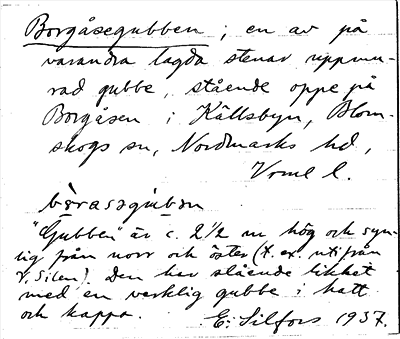 Borgåsegubben; en av på
varandra lagda stenar uppmu-
rad gubbe, stående oppe på
Borgåsen i Källsbyn, Blom-
skogs sn, Nordmarks hd,
Vrml l.
"Gubben" är c. 2½ m hög och syn-
lig från norr och öster (t. ex. uti från
V. Silen). Den har stående likhet
med en verklig gubbe i hatt
och kappa. E. Silfors 1937.